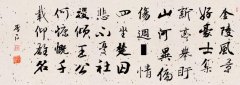 金陵風景
好豪士集
新亭舉目
山河異偏
傷週情
四坐楚囚
悲不憂社
稷傾王公
何慷慨千
載仰雄名